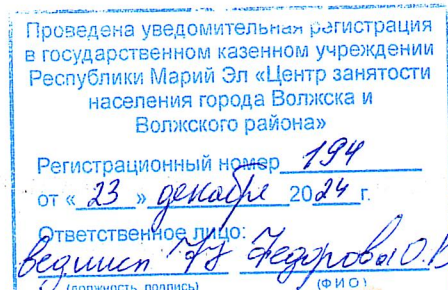 Проведена уведомительная регистрация
в государственном казенном учреждении
Республики Марий Эл «Центр занятости
населения города Волжска и
Волжского района»
Регистрационный номер 194
от « 23 » декабря 2024 г.
Ответственное лицо:
Федорова О.В
(должность, подпись) (ФИО)